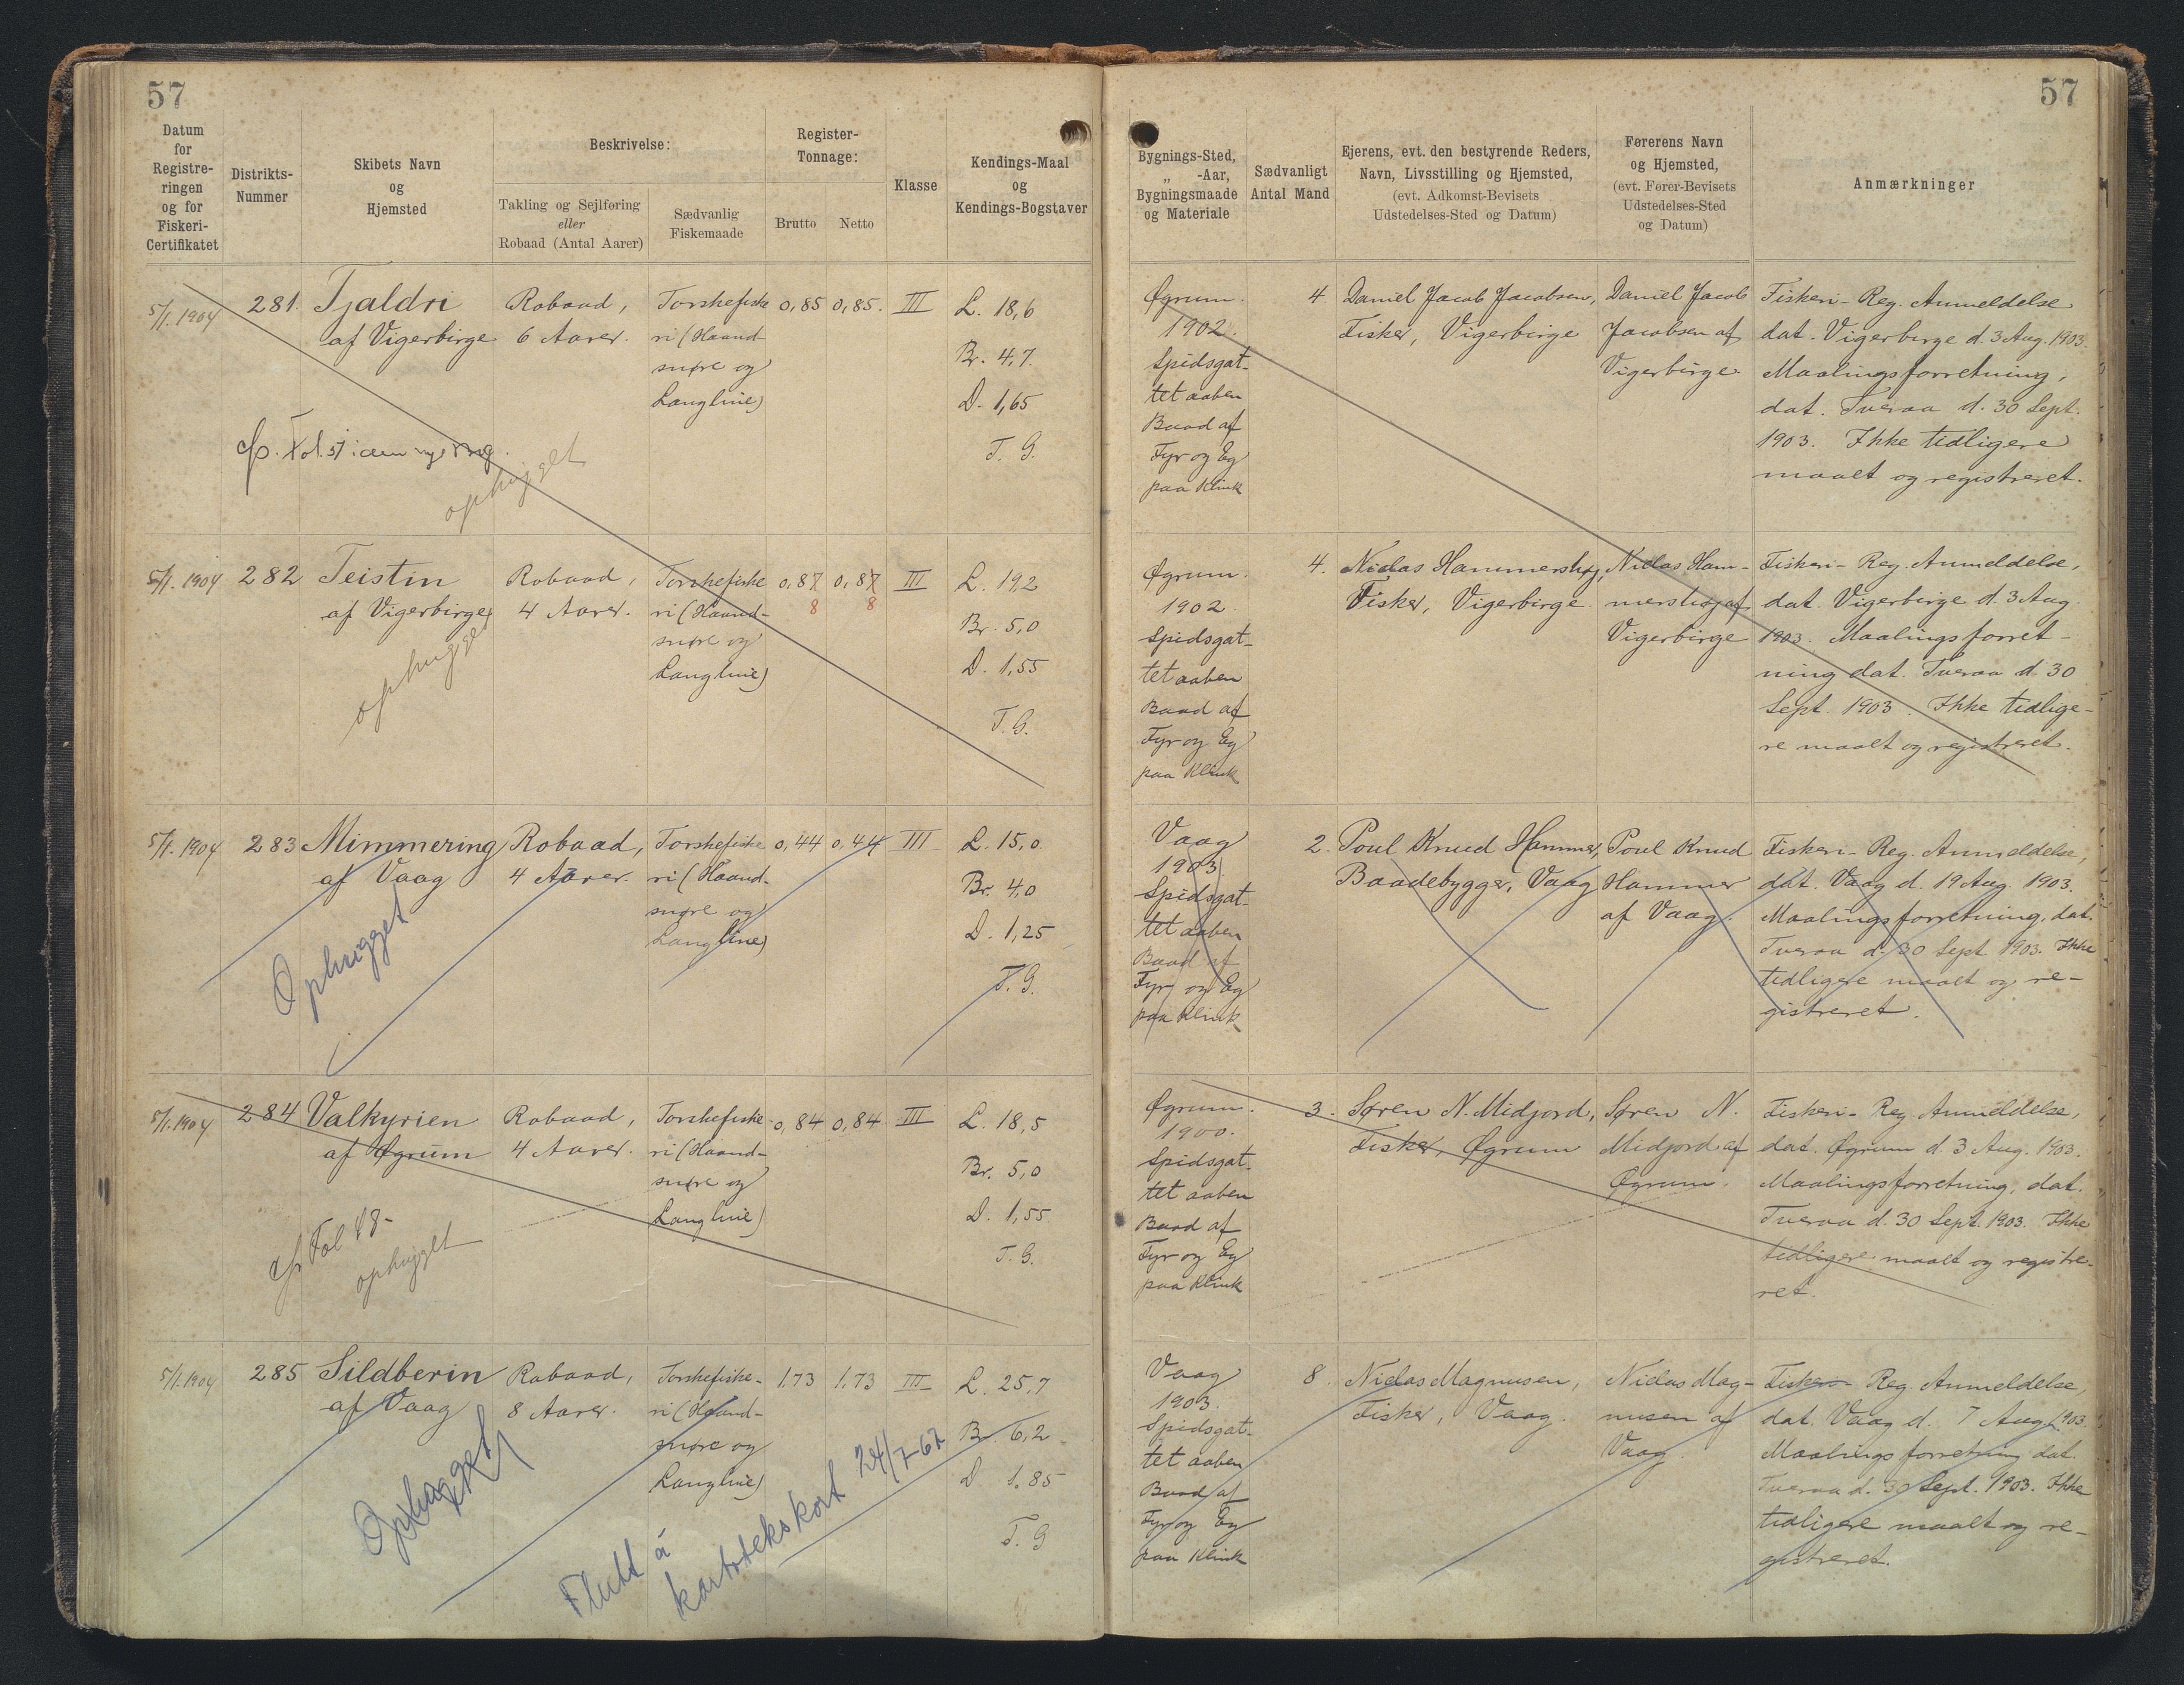 57
57
Datum
for
Registre-
ringen
og for
Fiskeri-
Certifikatet
Distrikts-
Nummer
Skibets Navn
og
Hjemsted
Beskrivelse:
Takling og Sejlføring
eller
Robaad (Antal Aarer)
Sædvanlig
Fiskemaade
Register-
Tonnage:
Brutto
Netto
Klasse
Kendings-Maal
og
Kendings-Bogstaver
Bygnings-Sted,
„ -Aar,
Bygningsmaade
og Materiale
Sædvanligt
Antal Mand
Ejerens, evt. den bestyrende Reders,
Navn, Livsstilling og Hjemsted,
(evt. Adkomst-Bevisets
Udstedelses-Sted og Datum)
Førerens Navn
og Hjemsted,
(evt. Fører-Bevisets
Udstedelses-Sted
og Datum)
Anmærkninger
5/1. 1904
281.
Tjaldri
af Vigerbirge
Robaad,
6 Aarer.
Torskefiske
ri (Haand-
snøre og
Langline)
0,85
0,85.
III
L. 18,6
Br. 4,7.
D. 1,65
T. G.
Fol. 57
ophugget
Øgrum.
1902.
Spidsgat-
tet aaben
Baad af
Fyr og Eg
paa Klink
4
Daniel Jacob Jacobsen,
Fisker, Vigerbirge
Daniel Jacob
Jacobsen af
Vigerbirge
Fiskeri-Reg. Anmeldelse
dat. Vigerbirge d. 3 Aug. 1903.
Maalingsforretning,
dat. Tveraa d. 30 Sept.
1903. Ikke tidligere
maalt og registreret.
5/1. 1904
282
Teistin
af Vigerbirge
Robaad,
4 Aarer.
Torskefiske
ri (Haand-
snøre og
Langline)
0,87
8
0,87
8
III
L. 19,2
Br. 5,0
D. 1,55
T. G.
ophugget
Øgrum.
1902.
Spidsgat-
tet aaben
Baad af
Fyr og Eg
paa Klink
4.
Niclas Hammershøj,
Fisker, Vigerbirge.
Niclas Ham-
mershøj af
Vigerbirge
Fiskeri-Reg. Anmeldelse,
dat. Vigerbirge d. 3 Aug.
1903. Maalingsforret-
ning dat. Tveraa d. 30
Sept. 1903. Ikke tidlige-
re maalt og registreret.
5/1. 1904
283
Mimmering
af Vaag
Robaad,
4 Aarer.
Torskefiske
ri (Haand-
snøre og
Langline)
0,44
0,44
III
L. 15,0
Br. 4,0
D. 1,25
T. G.
Ophugget
Vaag
1903
Spidsgat-
tet aaben
Baad af
Fyr og Eg
paa Klink
2.
Poul Knud Hammer,
Baadebygger, Vaag
Poul Knud
Hammer
af Vaag.
Fiskeri-Reg. Anmeldelse,
dat. Vaag d. 19 Aug. 1903.
Maalingsforretning, dat.
Tveraa d. 30 Sept 1903. Ikke
tidligere maalt og re-
gistreret.
5/1. 1904
284
Valkyrien
af Øgrum
Robaad,
4 Aarer.
Torskefiske-
ri (Haand-
snøre og
Langline)
0,84
0,84
III
L. 18,5
Br. 5,0
D. 1,55
T. G.
Fol 48-
ophugget
Øgrum.
1900.
Spidsgat-
tet aaben
Baad af
Fyr og Eg
paa Klink
3.
Søren N. Midjord,
Fisker, Øgrum
Søren N.
Midjord af
Øgrum.
Fiskeri-Reg. Anmeldelse,
dat. Øgrum d. 3 Aug. 1903.
Maalingsforretning, dat.
Tveraa d. 30 Sept. 1903. Ikke
tidligere maalt og registre-
ret.
5/1. 1904
285
Sildberin
af Vaag
Robaad,
8 Aarer.
Torskefiske-
ri (Haand-
snøre og
Langline)
1,73
1,73
III
L. 25,7
Br. 6,2
D 1,85
T. G
Ophugget
Flutt á
kartotekskort 24/7-67
Vaag
1903.
Spidsgat-
tet aaben
Baad af
Fyr og Eg
paa Klink
8
Niclas Magnusen,
Fisker, Vaag.
Niclas Mag-
nusen af
Vaag.
Fiskeri-Reg. Anmeldelse,
dat. Vaag d. 7 Aug. 1903
Maalingsforretning dat.
Tveraa d. 30 Sept. 1903. Ikke
tidligere maalt og re-
gistreret.